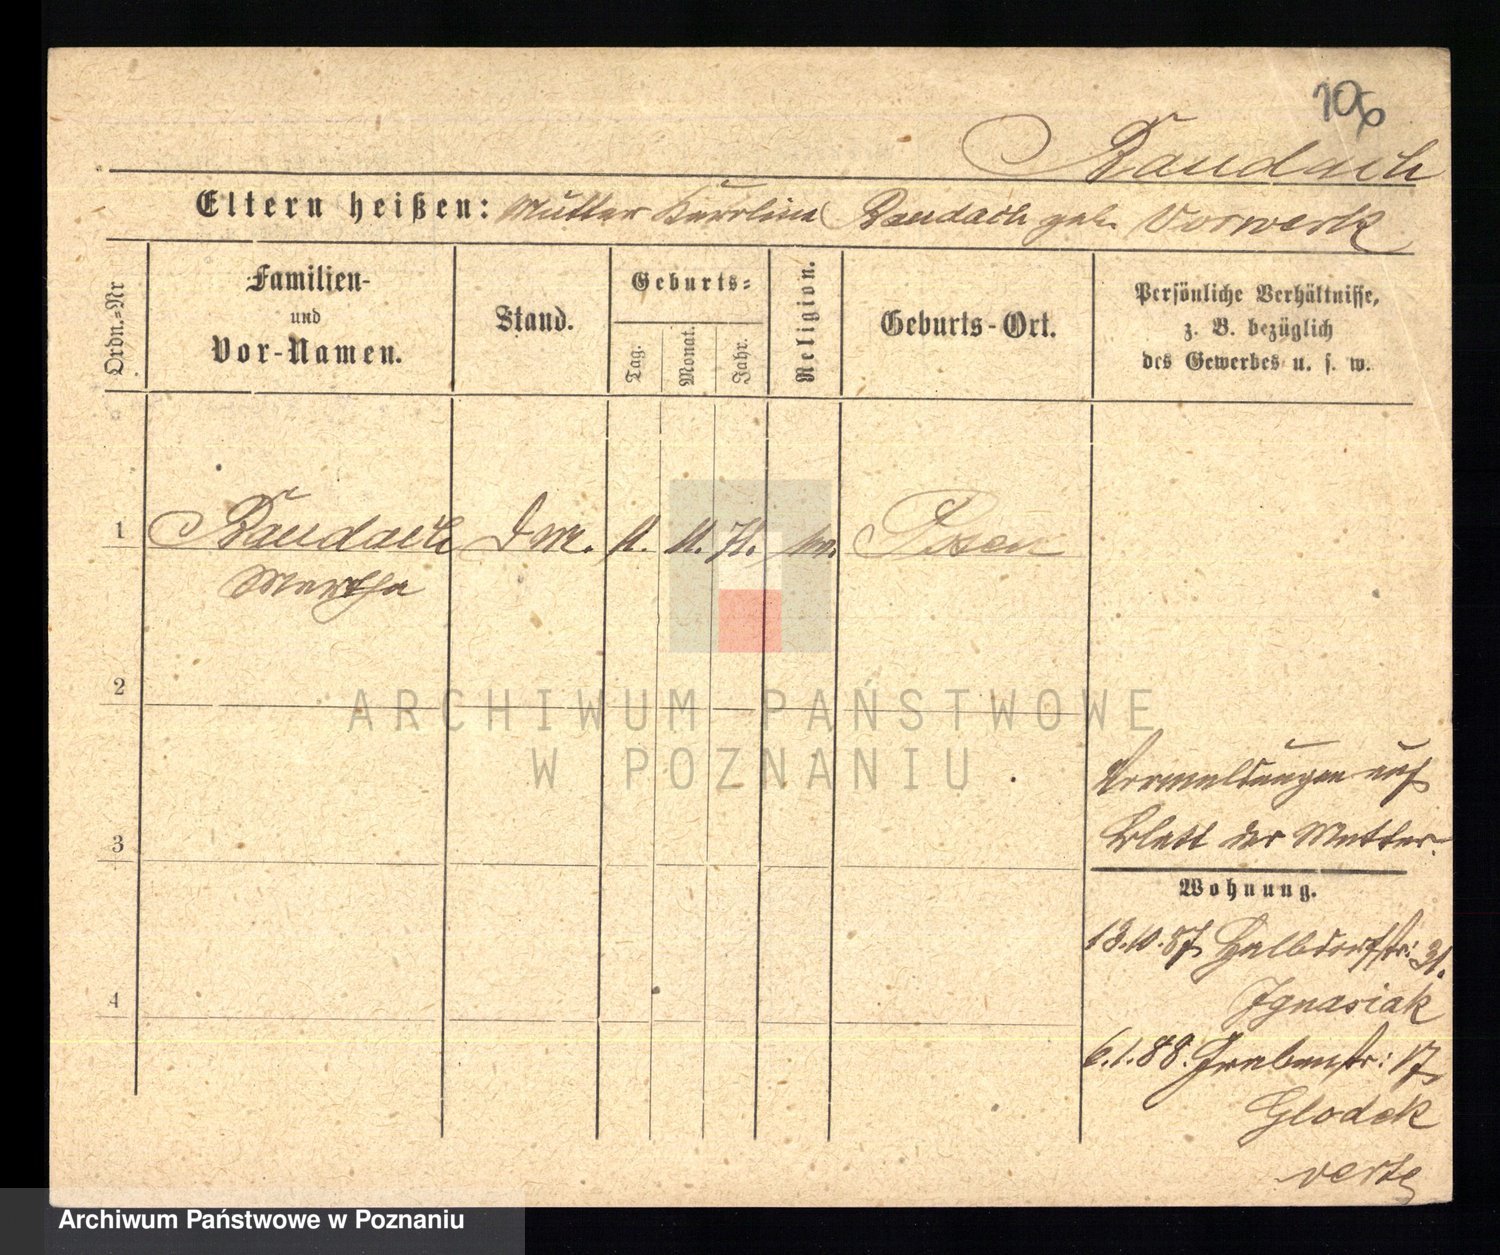 106
Baudach
Eltern heißen: Mutter Karoline Baudach geb. Vorwerk
Ordn.=Nr
Familien-
und
Vor-Namen.
Stand.
Geburts=
Tag.
Monat.
Jahr.
Religion.
Geburts-Ort.
Persönliche Verhältnisse,
z. B. bezüglich
des Gewerbes u. s. w.
1 Baudach 11. 11. 71. Posen
Martha
2
3
4
Vermeldungen auf
Blatt der Mutter.
Wohnung.
13.10.87 Halbdorfstr: 31.
Ignasiak
6.1.88. Grabenstr: 17
Glodek
verte
ARCHIWUM PAŃSTWOWE
W POZNANIU
Archiwum Państwowe w Poznaniu